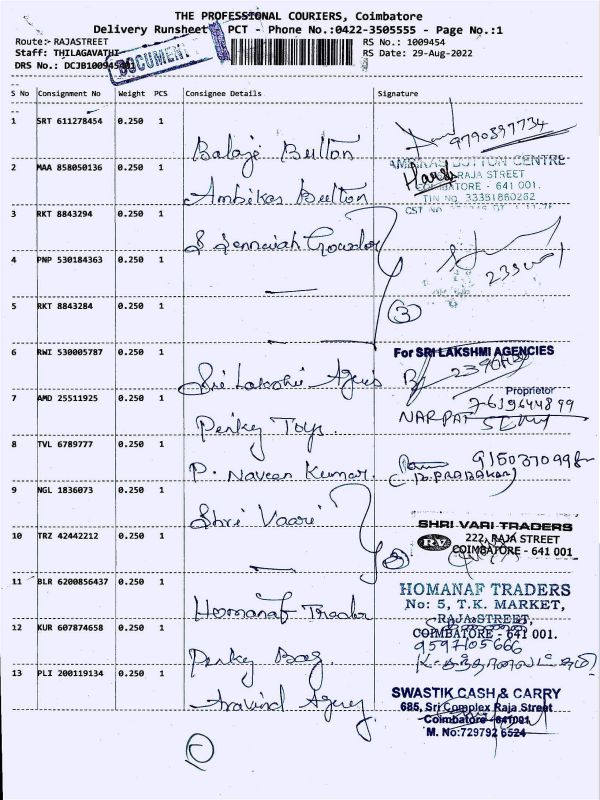 THE PROFESSIONAL COURIERS, Coimbatore
Delivery Runsheet PCT - Phone No.:0422-3505555 - Page No.:1
Route:- RAJASTREET RS No.: 1009454
Staff: THILAGAVATHI RS Date: 29-Aug-2022
DRS No.: DCJB1009454
DOCUMENT
S No Consignment No Weight PCS Consignee Details Signature
1 SRT 611278454 0.250 1
Balaje Button 9790897734
2 MAA 858050136 0.250 1 BUTTON CENTRE
RAJA STREET
Ambikas Button COIMBATORE - 641 001.
TIN No. 33351860262
3 RKT 8843294 0.250 1 CST
4 PNP 530184363 0.250 1
5 RKT 8843284 0.250 1 3
6 RWI 530005787 0.250 1 For SRI LAKSHMI AGENCIES
Proprietor
7 AMD 25511925 0.250 1
Perky Toys. NARPAT
8 TVL 6789777 0.250 1
P. Naveen Kumar.
9 NGL 1836073 0.250 1
Shri Vaari SHRI VARI TRADERS
10 TRZ 42442212 0.250 1 RV 222, RAJA STREET
COIMBATORE - 641 001
11 BLR 6200856437 0.250 1 HOMANAF TRADERS
No: 5, T.K. MARKET,
Homanaf Trader RAJA STREET,
12 KUR 607874658 0.250 1 COIMBATORE - 641 001.
9597105666
Perky Bag
13 PLI 200119134 0.250 1
Aravind Agency SWASTIK CASH & CARRY
685, Sri Complex Raja Street
Coimbatore - 641001
M. No:729792 6524